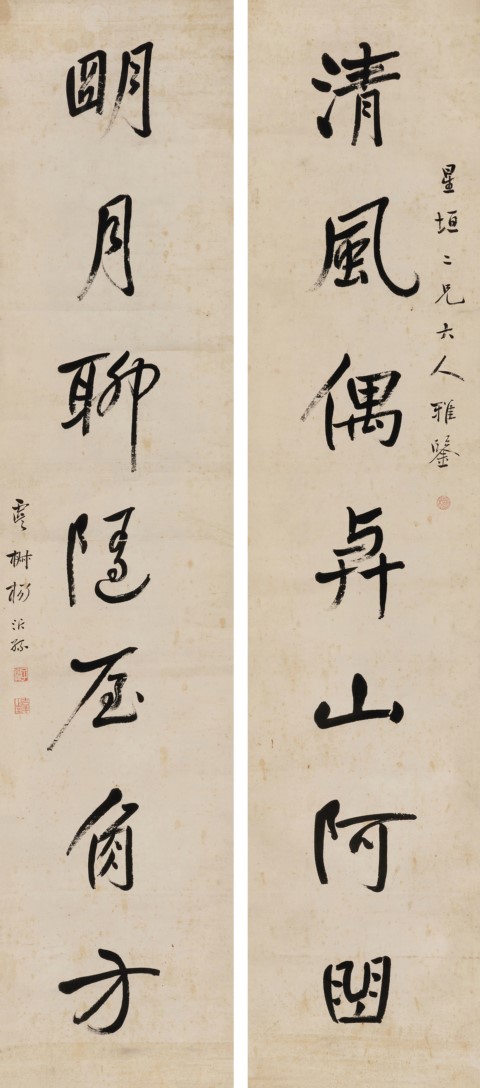 星垣二兄大人雅鑒
清風偶與山阿曲
明月聊隨屋角方
楊沂孫